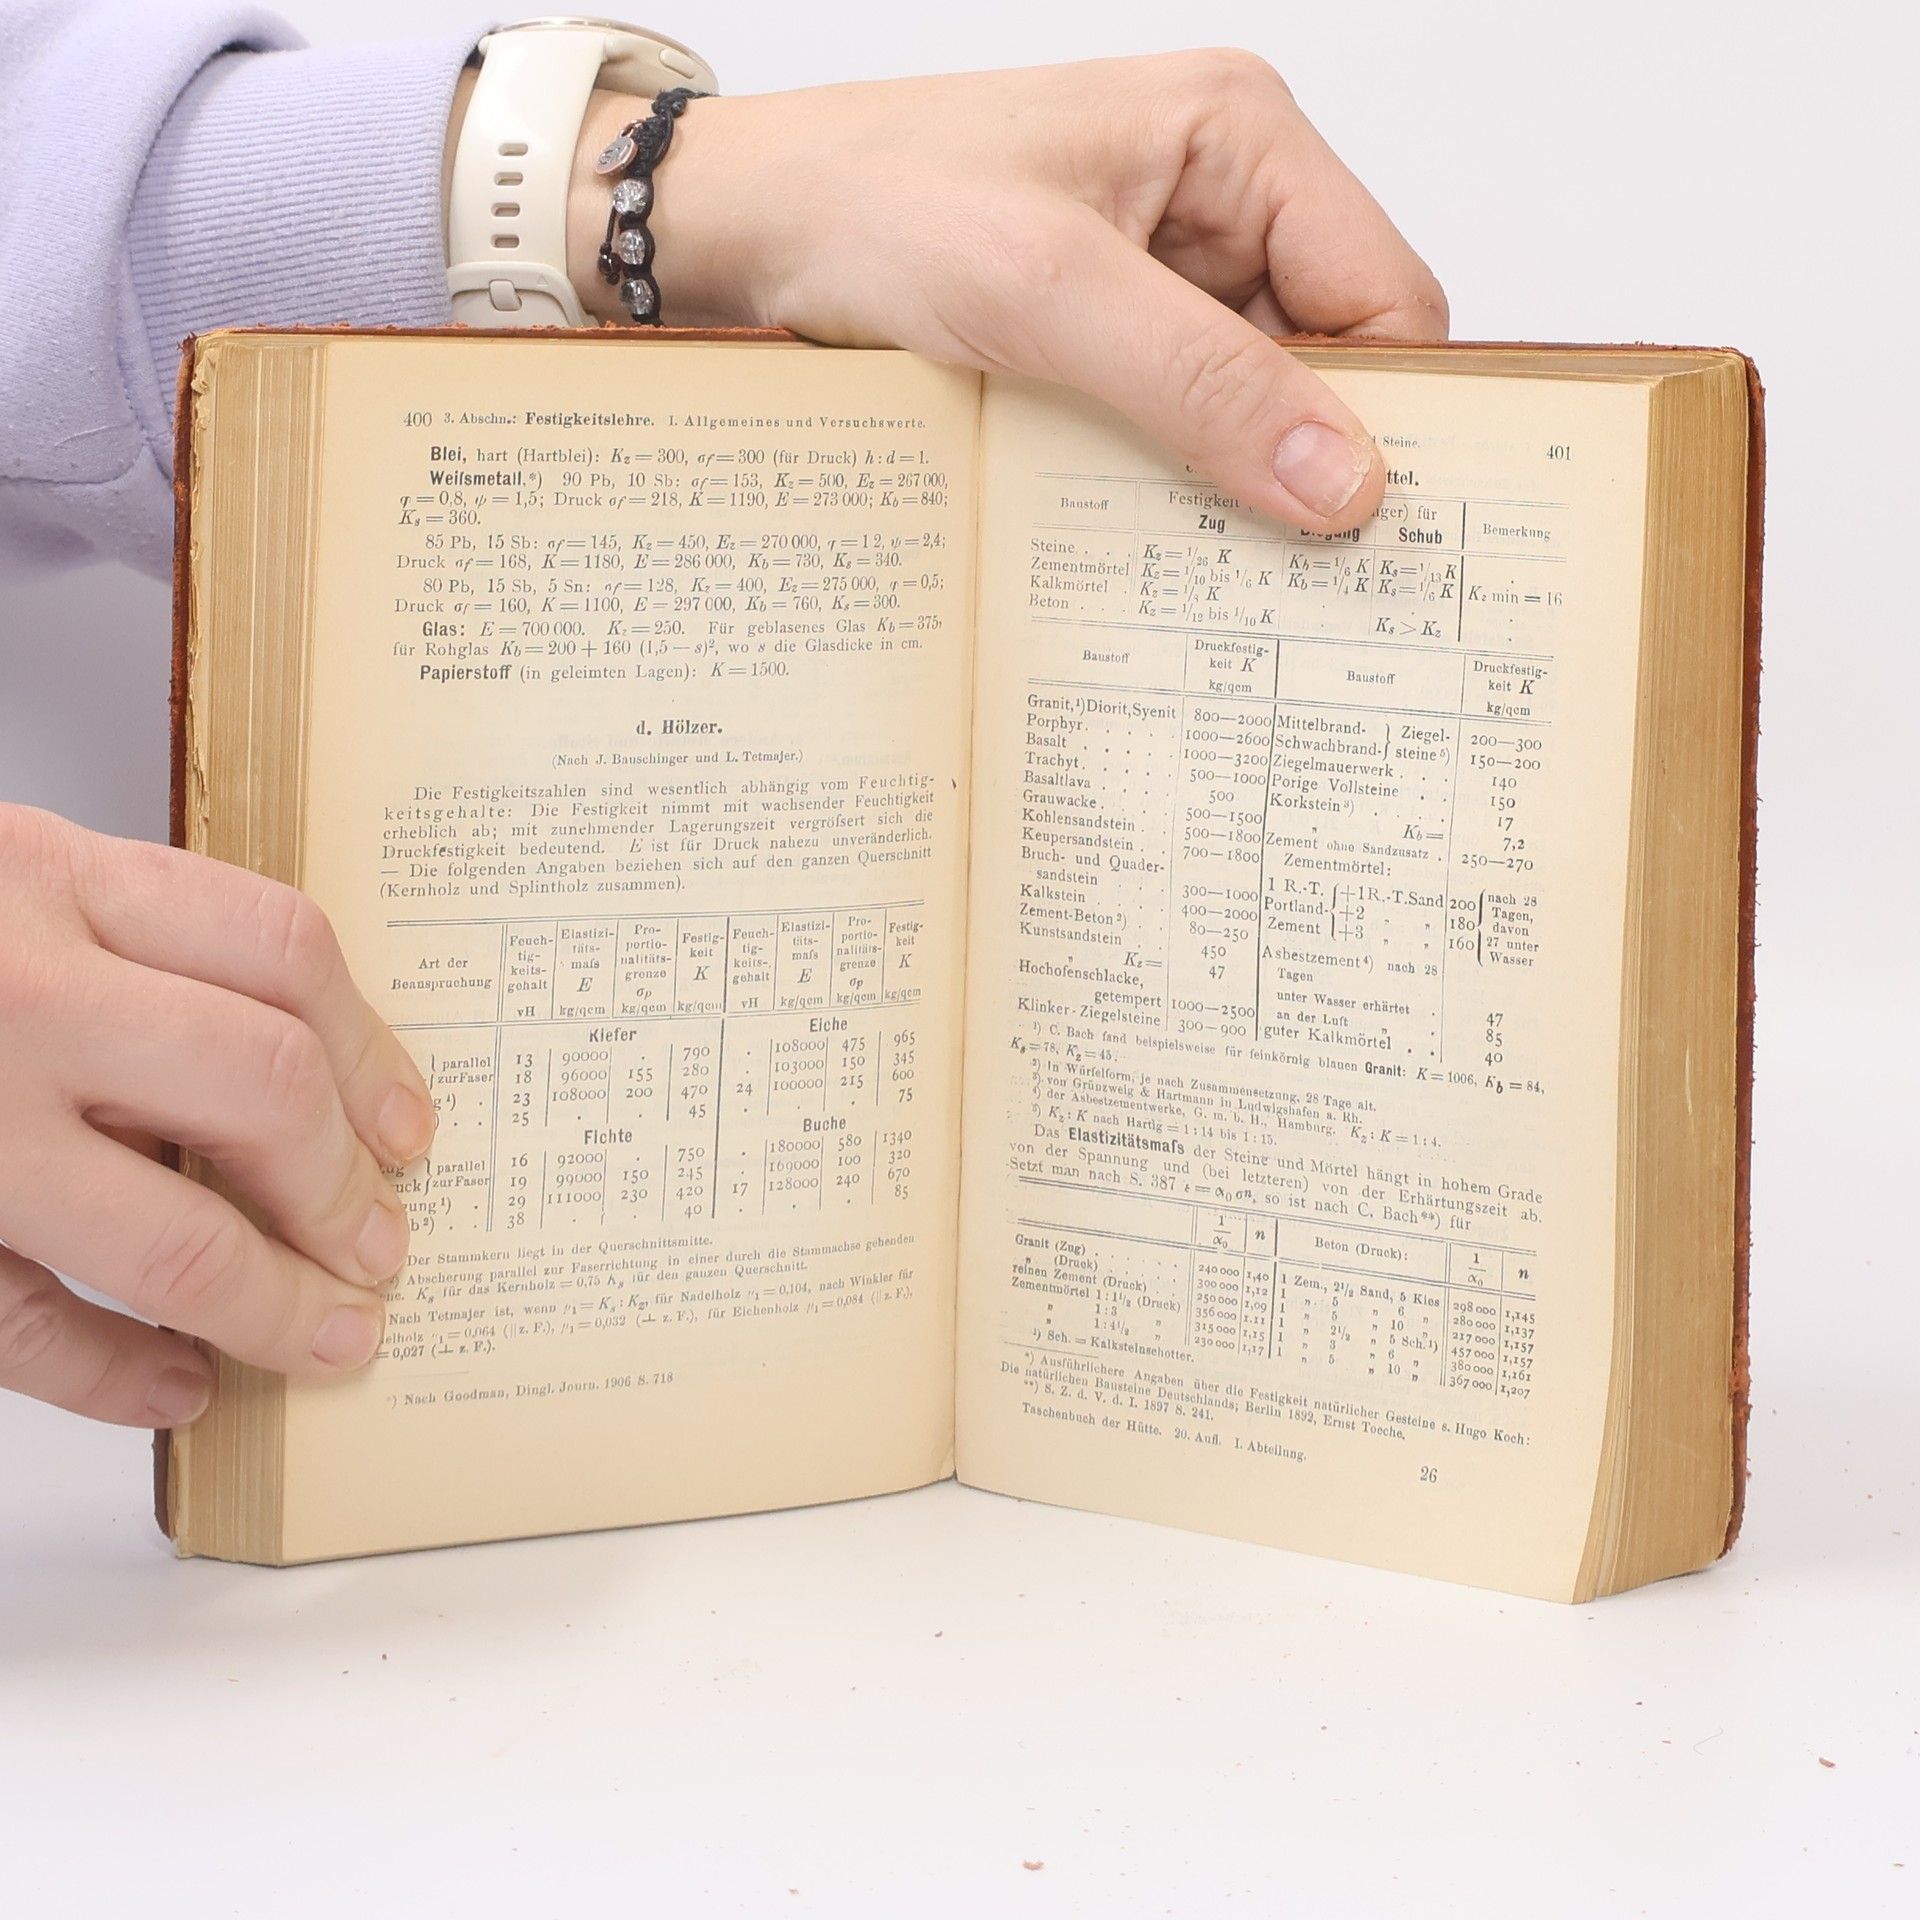 400 3. Abschn.: Festigkeitslehre. I. Allgemeines und Versuchswerte.
Blei, hart (Hartblei): Kz = 300, σf = 300 (für Druck) h : d = 1.
Weifsmetall.*) 90 Pb, 10 Sb: σf = 153, Kz = 500, Ez = 267 000,
φ = 0,8, ψ = 1,5; Druck σf = 218, K = 1190, E = 273 000; Kb = 840;
Ks = 360.
85 Pb, 15 Sb: σf = 145, Kz = 450, Ez = 270 000, φ = 1 2, ψ = 2,4;
Druck σf = 168, K = 1180, E = 286 000, Kb = 730, Ks = 340.
80 Pb, 15 Sb, 5 Sn: σf = 128, Kz = 400, Ez = 275 000, φ = 0,5;
Druck σf = 160, K = 1100, E = 297 000, Kb = 760, Ks = 300.
Glas: E = 700 000. Kz = 250. Für geblasenes Glas Kb = 375,
für Rohglas Kb = 200 + 160 (1,5 — s)², wo s die Glasdicke in cm.
Papierstoff (in geleimten Lagen): K = 1500.
d. Hölzer.
(Nach J. Bauschinger und L. Tetmajer.)
Die Festigkeitszahlen sind wesentlich abhängig vom Feuchtig-
keitsgehalte: Die Festigkeit nimmt mit wachsender Feuchtigkeit
erheblich ab; mit zunehmender Lagerungszeit vergröfsert sich die
Druckfestigkeit bedeutend. E ist für Druck nahezu unveränderlich.
— Die folgenden Angaben beziehen sich auf den ganzen Querschnitt
(Kernholz und Splintholz zusammen).
Art der Beanspruchung Feuch-tig-keits-gehalt vH Elastizi-täts-mafs E kg/qcm Pro-portio-nalitäts-grenze σp kg/qcm Festig-keit K kg/qcm Feuch-tig-keits-gehalt vH Elastizi-täts-mafs E kg/qcm Pro-portio-nalitäts-grenze σp kg/qcm Festig-keit K kg/qcm
Kiefer Eiche
parallel 13 90000 . 790 . 108000 475 965
zur Faser 18 96000 155 280 . 103000 150 345
g¹) . 23 108000 200 470 24 100000 215 600
) . . 25 . . 45 . . . 75
Fichte Buche
parallel 16 92000 . 750 . 180000 580 1340
uck zur Faser 19 99000 150 245 . 169000 100 320
gung¹) . 29 111000 230 420 17 128000 240 670
b²) . . 38 . . 40 . . . 85
Der Stammkern liegt in der Querschnittsmitte.
²) Abscherung parallel zur Faserrichtung in einer durch die Stammachse gehenden
ne. Ks für das Kernholz = 0,75 Ks für den ganzen Querschnitt.
Nach Tetmajer ist, wenn μ1 = Ks : Kz, für Nadelholz μ1 = 0,104, nach Winkler für
elholz μ1 = 0,064 (|| z. F.), μ1 = 0,032 (⊥ z. F.), für Eichenholz μ1 = 0,084 (|| z. F.),
= 0,027 (⊥ z. F.).
*) Nach Goodman, Dingl. Journ. 1906 S. 718
Steine. 401
ttel.
Baustoff Festigkeit nger) für Bemerkung
Zug Biegung Schub
Steine . . . Kz = 1/26 K Kb = 1/6 K Ks = 1/13 K .
Zementmörtel Kz = 1/10 bis 1/6 K Kb = 1/4 K Ks = 1/6 K Kz min = 16
Kalkmörtel . Kz = 1/8 K . . .
Beton . . . Kz = 1/12 bis 1/10 K . Ks > Kz .
Baustoff Druckfestig-keit K kg/qcm Baustoff Druckfestig-keit K kg/qcm
Granit,¹) Diorit, Syenit 800—2000 Mittelbrand- } Ziegel- 200—300
Porphyr. 1000—2600 Schwachbrand- } steine⁵) 150—200
Basalt 1000—3200 Ziegelmauerwerk . . . 140
Trachyt. 500—1000 Porige Vollsteine . . 150
Basaltlava 500 Korkstein³) . . . . 17
Grauwacke. 500—1500 „ Kb = 7,2
Kohlensandstein . 500—1800 Zement ohne Sandzusatz . 250—270
Keupersandstein . 700—1800 Zementmörtel:
Bruch- und Quader-
sandstein 300—1000 1 R.-T. +1 R.-T. Sand 200 nach 28
Kalkstein 400—2000 Portland- +2 „ „ 180 Tagen, davon
Zement-Beton²) . 80—250 Zement +3 „ „ 160 27 unter Wasser
Kunstsandstein . . 450 Asbestzement⁴) nach 28
„ Kz = 47 Tagen
Hochofenschlacke, unter Wasser erhärtet . 47
getempert 1000—2500 an der Luft „ . 85
Klinker-Ziegelsteine 300—900 guter Kalkmörtel . . 40
¹) C. Bach fand beispielsweise für feinkörnig blauen Granit: K = 1006, Kb = 84,
Ks = 78, Kz = 45.
²) In Würfelform, je nach Zusammensetzung, 28 Tage alt.
³) von Grünzweig & Hartmann in Ludwigshafen a. Rh.
⁴) der Asbestzementwerke, G. m. b. H., Hamburg. Kz : K = 1 : 4.
⁵) Kz : K nach Hartig = 1 : 14 bis 1 : 15.
Das Elastizitätsmafs der Steine und Mörtel hängt in hohem Grade
von der Spannung und (bei letzteren) von der Erhärtungszeit ab.
Setzt man nach S. 387 ε = α0 σn, so ist nach C. Bach**) für
1/α0 n Beton (Druck): 1/α0 n
Granit (Zug) . . . . . 240 000 1,40 1 Zem., 2½ Sand, 5 Kies 298 000 1,145
„ (Druck) . . . . 300 000 1,12 1 „ 5 „ 6 „ 280 000 1,137
reinen Zement (Druck) . . 250 000 1,09 1 „ 5 „ 10 „ 217 000 1,157
Zementmörtel 1 : 1½ (Druck) 356 000 1.11 1 „ 2½ „ 5 Sch.¹) 457 000 1,157
„ 1 : 3 „ 315 000 1,15 1 „ 3 „ 6 „ 380 000 1,161
„ 1 : 4½ „ 230 000 1,17 1 „ 5 „ 10 „ 367 000 1,207
¹) Sch. = Kalksteinschotter.
*) Ausführlichere Angaben über die Festigkeit natürlicher Gesteine s. Hugo Koch:
Die natürlichen Bausteine Deutschlands; Berlin 1892, Ernst Toeche.
**) S. Z. d. V. d. I. 1897 S. 241.
Taschenbuch der Hütte. 20. Aufl. I. Abteilung.
26